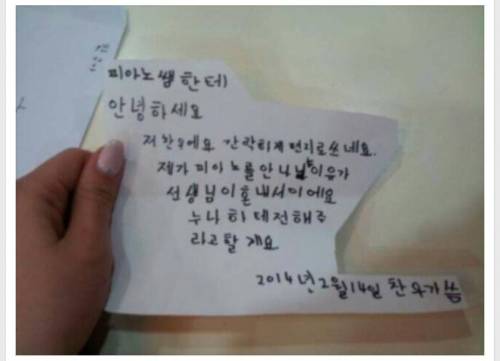 피아노쌤한테
안녕하세요
저 찬우에요 간락하게 편지로쓰네요.
제가 피아노를 안 나는 이유가
선생님이 혼내서이에요
누나 하테전해주
라고할 게요
2014년 2월 14일 찬우가 씀